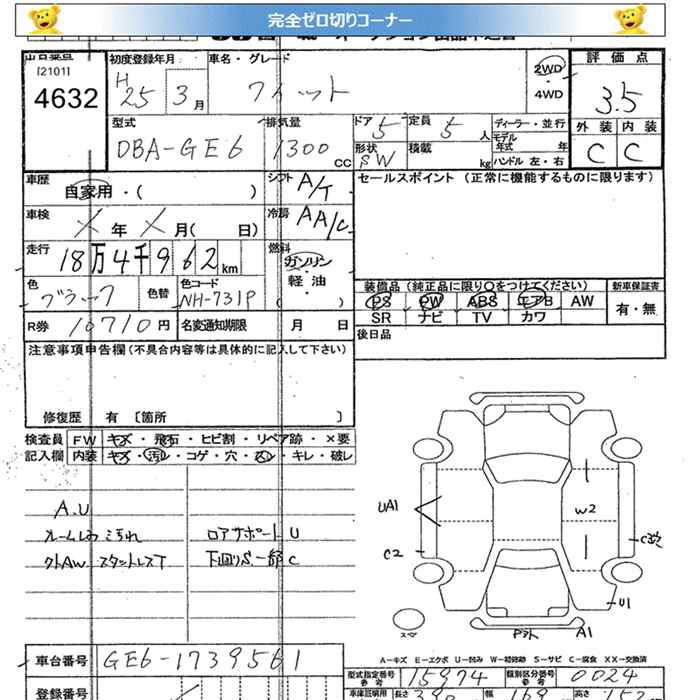 完全ゼロ切りコーナー
出品番号
[2101]
4632
初度登録年月
H25 3月
車名・グレード
フィット
2WD
4WD
評価点
3.5
外装 内装
C C
型式
DBA-GE6
排気量
1300 CC
ドア 5
形状 SW
定員 5 人
積載 kg
ディーラー・並行
モデル年式 年
ハンドル 左・右
車歴
自家用・( )
シフト A/T
車検
X 年 X 月( 日)
冷房 AA/C
走行
18万4千962km
燃料
ガソリン・
軽油・
( )
色
ブラック
色替
色コード
NH-731P
R券 10710円 名変通知期限 月 日
セールスポイント (正常に機能するものに限ります)
装備品(純正品に限り○をつけてください)
PS PW ABS エアB AW
SR ナビ TV カワ
新車保証書
有・無
後日品
注意事項申告欄(不具合内容等は具体的に記入して下さい)
修復歴 有 〔箇所 〕
検査員 FW キズ・飛石・ヒビ割・リペア跡・×要
記入欄 内装 キズ・汚レ・コゲ・穴・スレ・キレ・破レ
A.U
ルームしみ 汚れ
ロアサポート U
クトAW スタットレスT
下回りS.一部C
UA1
C2
W2
U1
A1
A-キズ E-エクボ U-凹み W-補修跡 S-サビ C-腐食 XX-交換済
車台番号 GE6-1739561
型式指定番号
参考
15974
類別区分番号
参考
0024
登録番号
長さ
幅
高さ